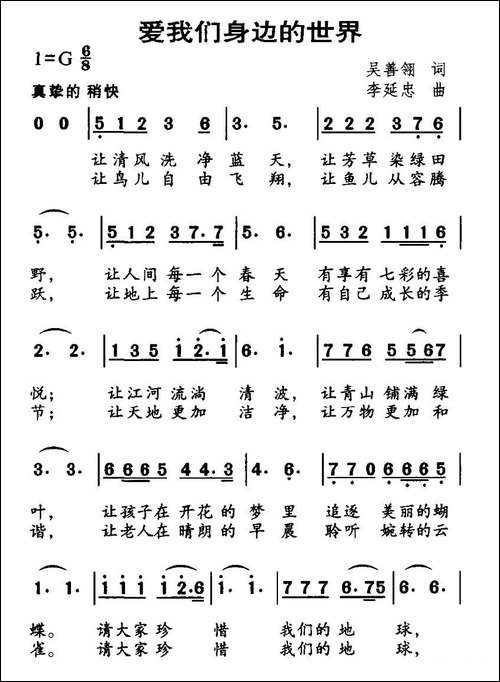 爱我们身边的世界
1=G 6/8
吴善翎 词
真挚的 稍快
李延忠 曲
0 0 | 5 1 2 3 6 | 3. 5. | 2 2 2 3 7 6 |
让清风洗净蓝天, 让芳草染绿田
让鸟儿自由飞翔, 让鱼儿从容腾
5. 5. | 5 1 2 3 7. 7 | 5. 6. | 5 3 2 1 1 1 6 |
野, 让人间每一个春天 有享有七彩的喜
跃, 让地上每一个生命 有自己成长的季
2. 2. | 1 3 5 1 2. 1 | 6. 1. | 7 7 6 5 5 6 7 |
悦; 让江河流淌 清波, 让青山铺满绿
节; 让天地更加 洁净, 让万物更加和
3. 3. | 6 6 6 5 4 4. 3 | 4. 6. | 7 7 0 6 6 6 5 |
叶, 让孩子在开花的梦里 追逐 美丽的蝴
谐, 让老人在晴朗的早晨 聆听 婉转的云
1. 1. | 1 1 1 1 2. 6 | 1. 1. | 7 7 7 6. 7 5 | 6. 6. |
蝶。 请大家珍 惜 我们的地 球,
雀。 请大家珍 惜 我们的地 球,